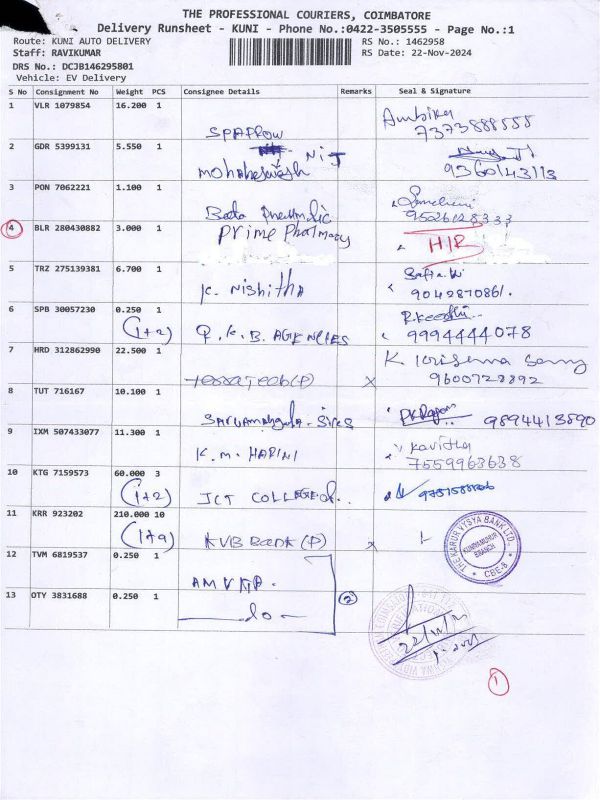 THE PROFESSIONAL COURIERS, COIMBATORE
Delivery Runsheet - KUNI - Phone No.:0422-3505555 - Page No.:1
Route: KUNI AUTO DELIVERY
RS No.: 1462958
Staff: RAVIKUMAR
RS Date: 22-Nov-2024
DRS No.: DCJB146295801
Vehicle: EV Delivery
S No Consignment No Weight PCS Consignee Details Remarks Seal & Signature
1 VLR 1079854 16.200 1
SPARROW
Ambika
7373888555
2 GDR 5399131 5.550 1
NIT
9360143113
3 PON 7062221 1.100 1
Pneumatic
9502628333
4 BLR 280430882 3.000 1
Prime Pharmacy
H/R
5 TRZ 275139381 6.700 1
K. Nishitha
9042870861.
6 SPB 30057230 0.250 1
(1+2)
R.K.B. AGENCIES
9994444078
7 HRD 312862990 22.500 1
(P) X
K Krishna Samy
9600728892
8 TUT 716167 10.100 1
9894413890
9 IXM 507433077 11.300 1
K.M. HARINI
Kavitha
7559963638
10 KTG 7159573 60.000 3
(1+2)
JCT COLLEGE
11 KRR 923202 210.000 10
(1+9)
KVB Bank (P) X
THE KARUR VYSYA BANK LTD
KUNIYAMUTHUR
BRANCH
CBE-8
12 TVM 6819537 0.250 1
13 OTY 3831688 0.250 1
—do—
2
22/11/24
1